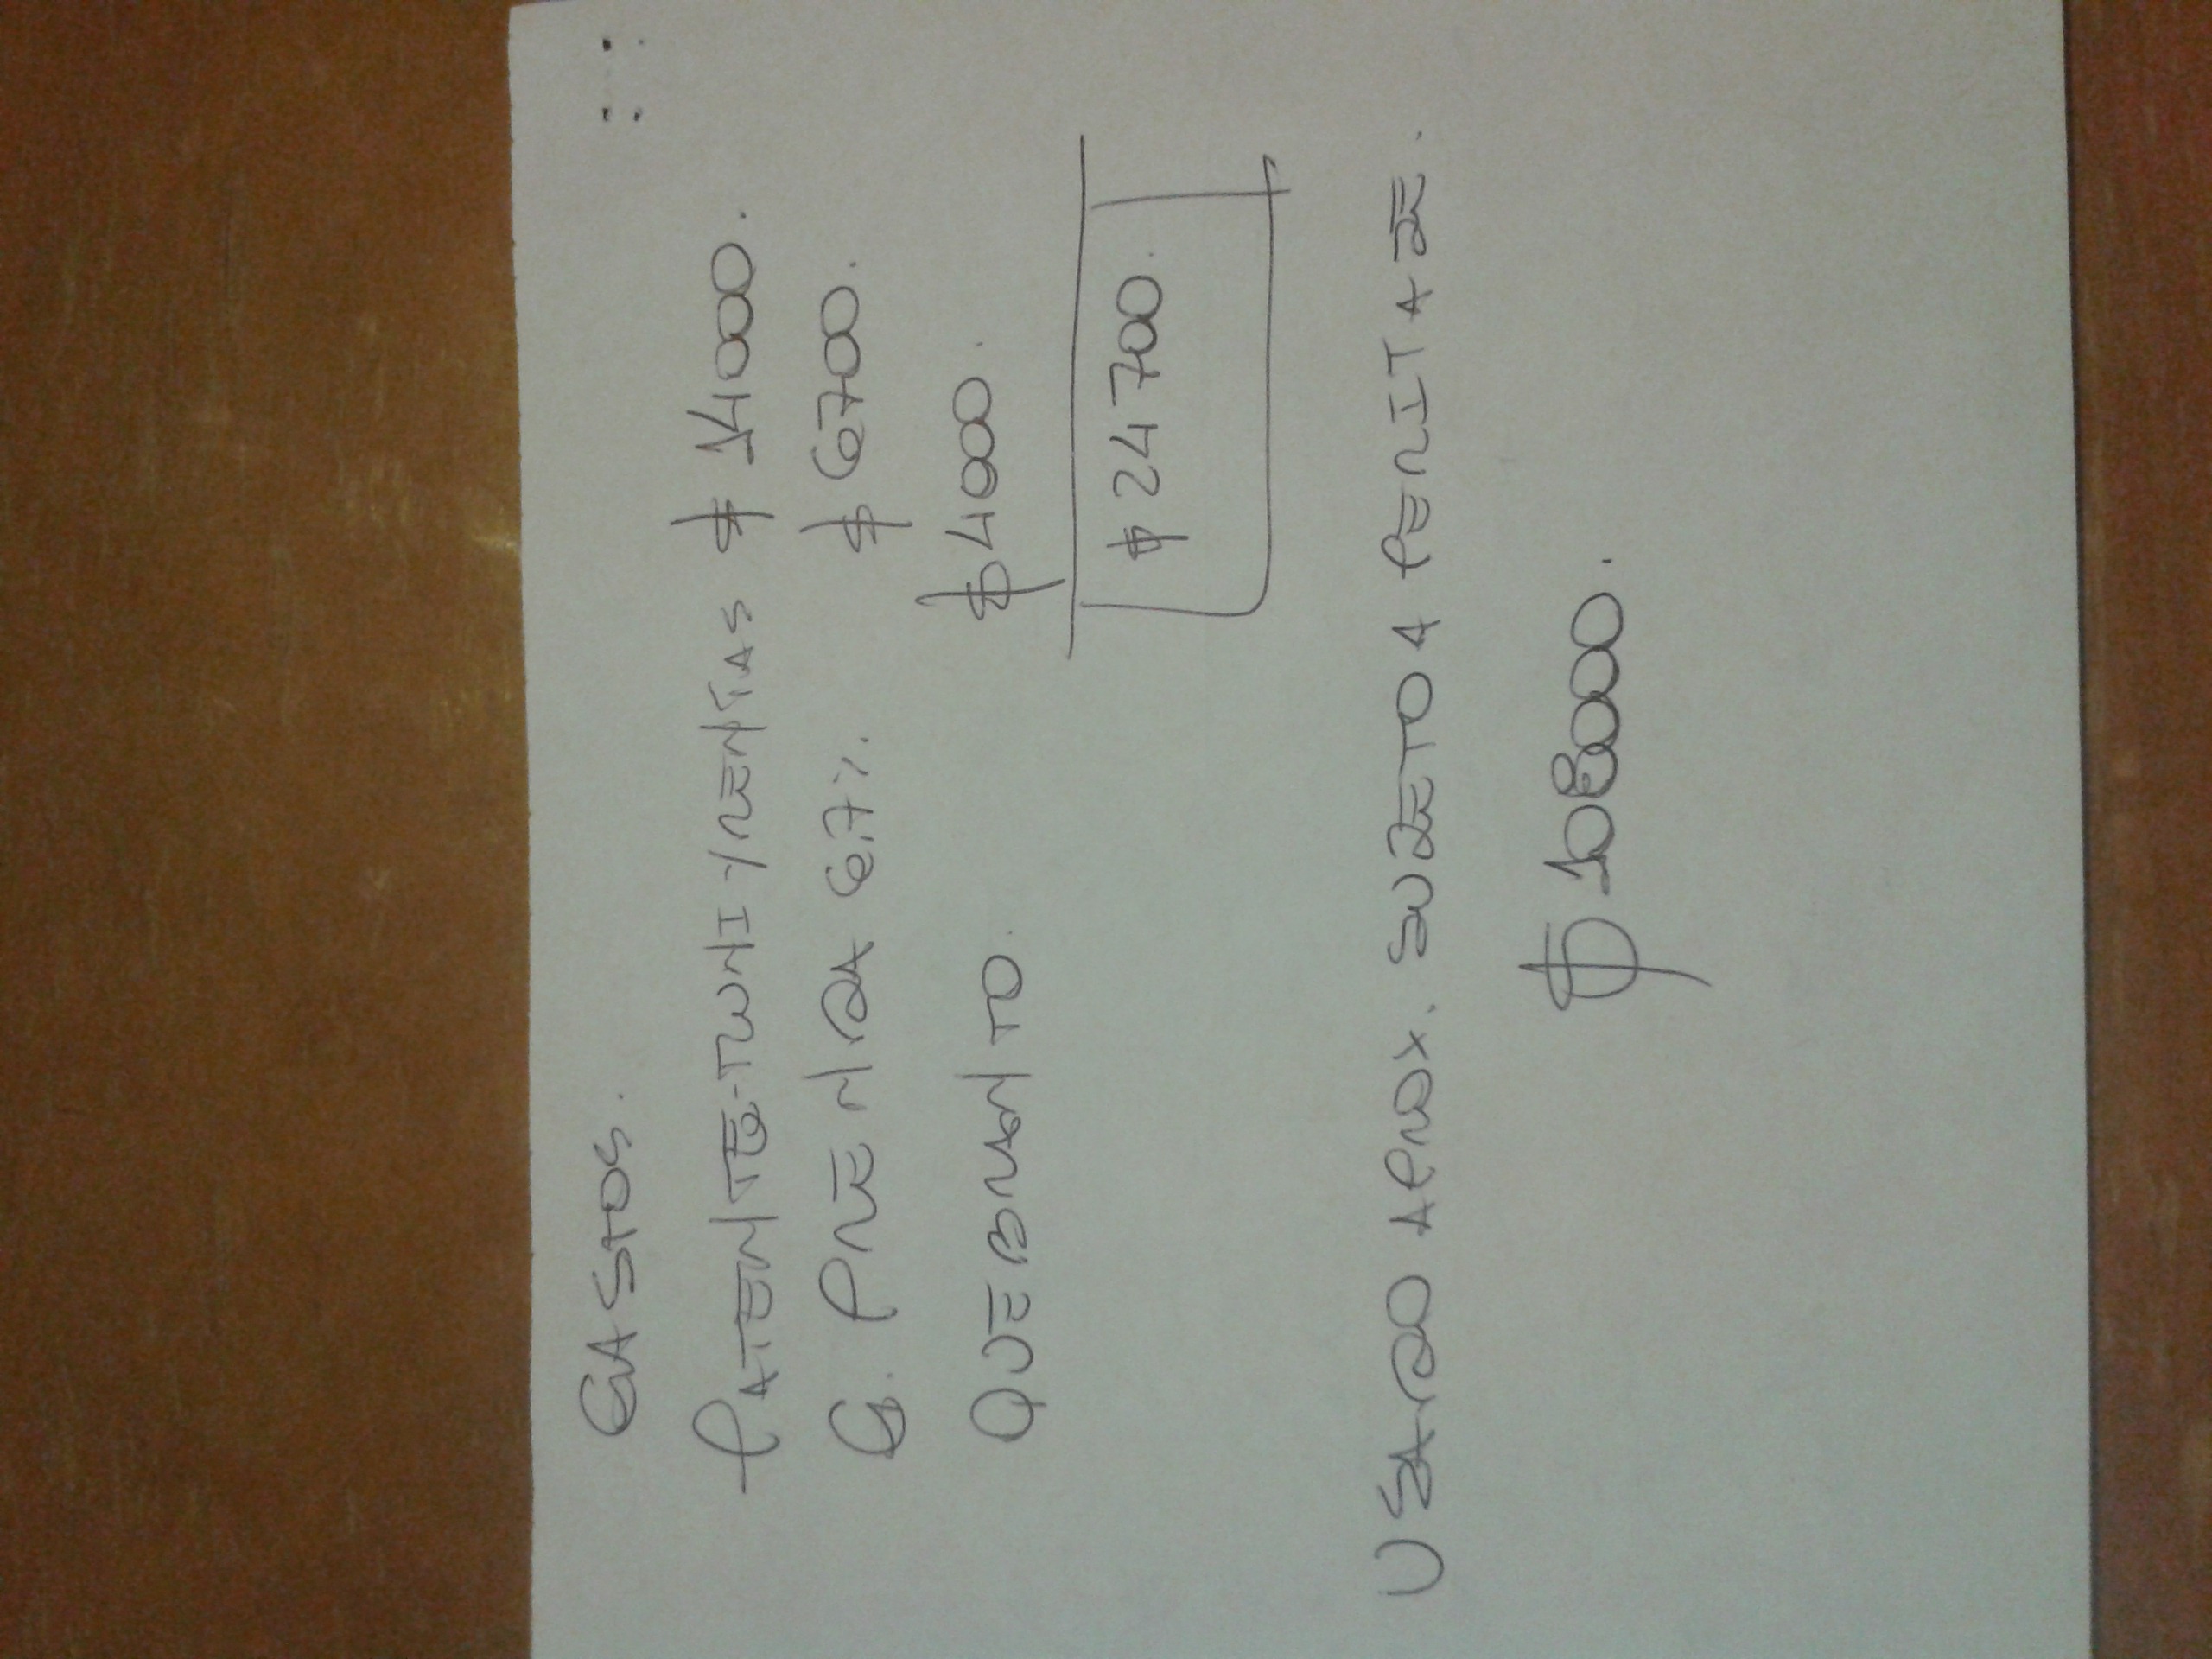 GASTOS.
PATENTE-MUNI Y RENTAS $ 14000.
G. PRENDA 6.7%. $ 6700.
QUEBRANTO. $ 4000.
$ 24700.
USADO APROX. SUJETO A PERITAJE.
$ 108000.